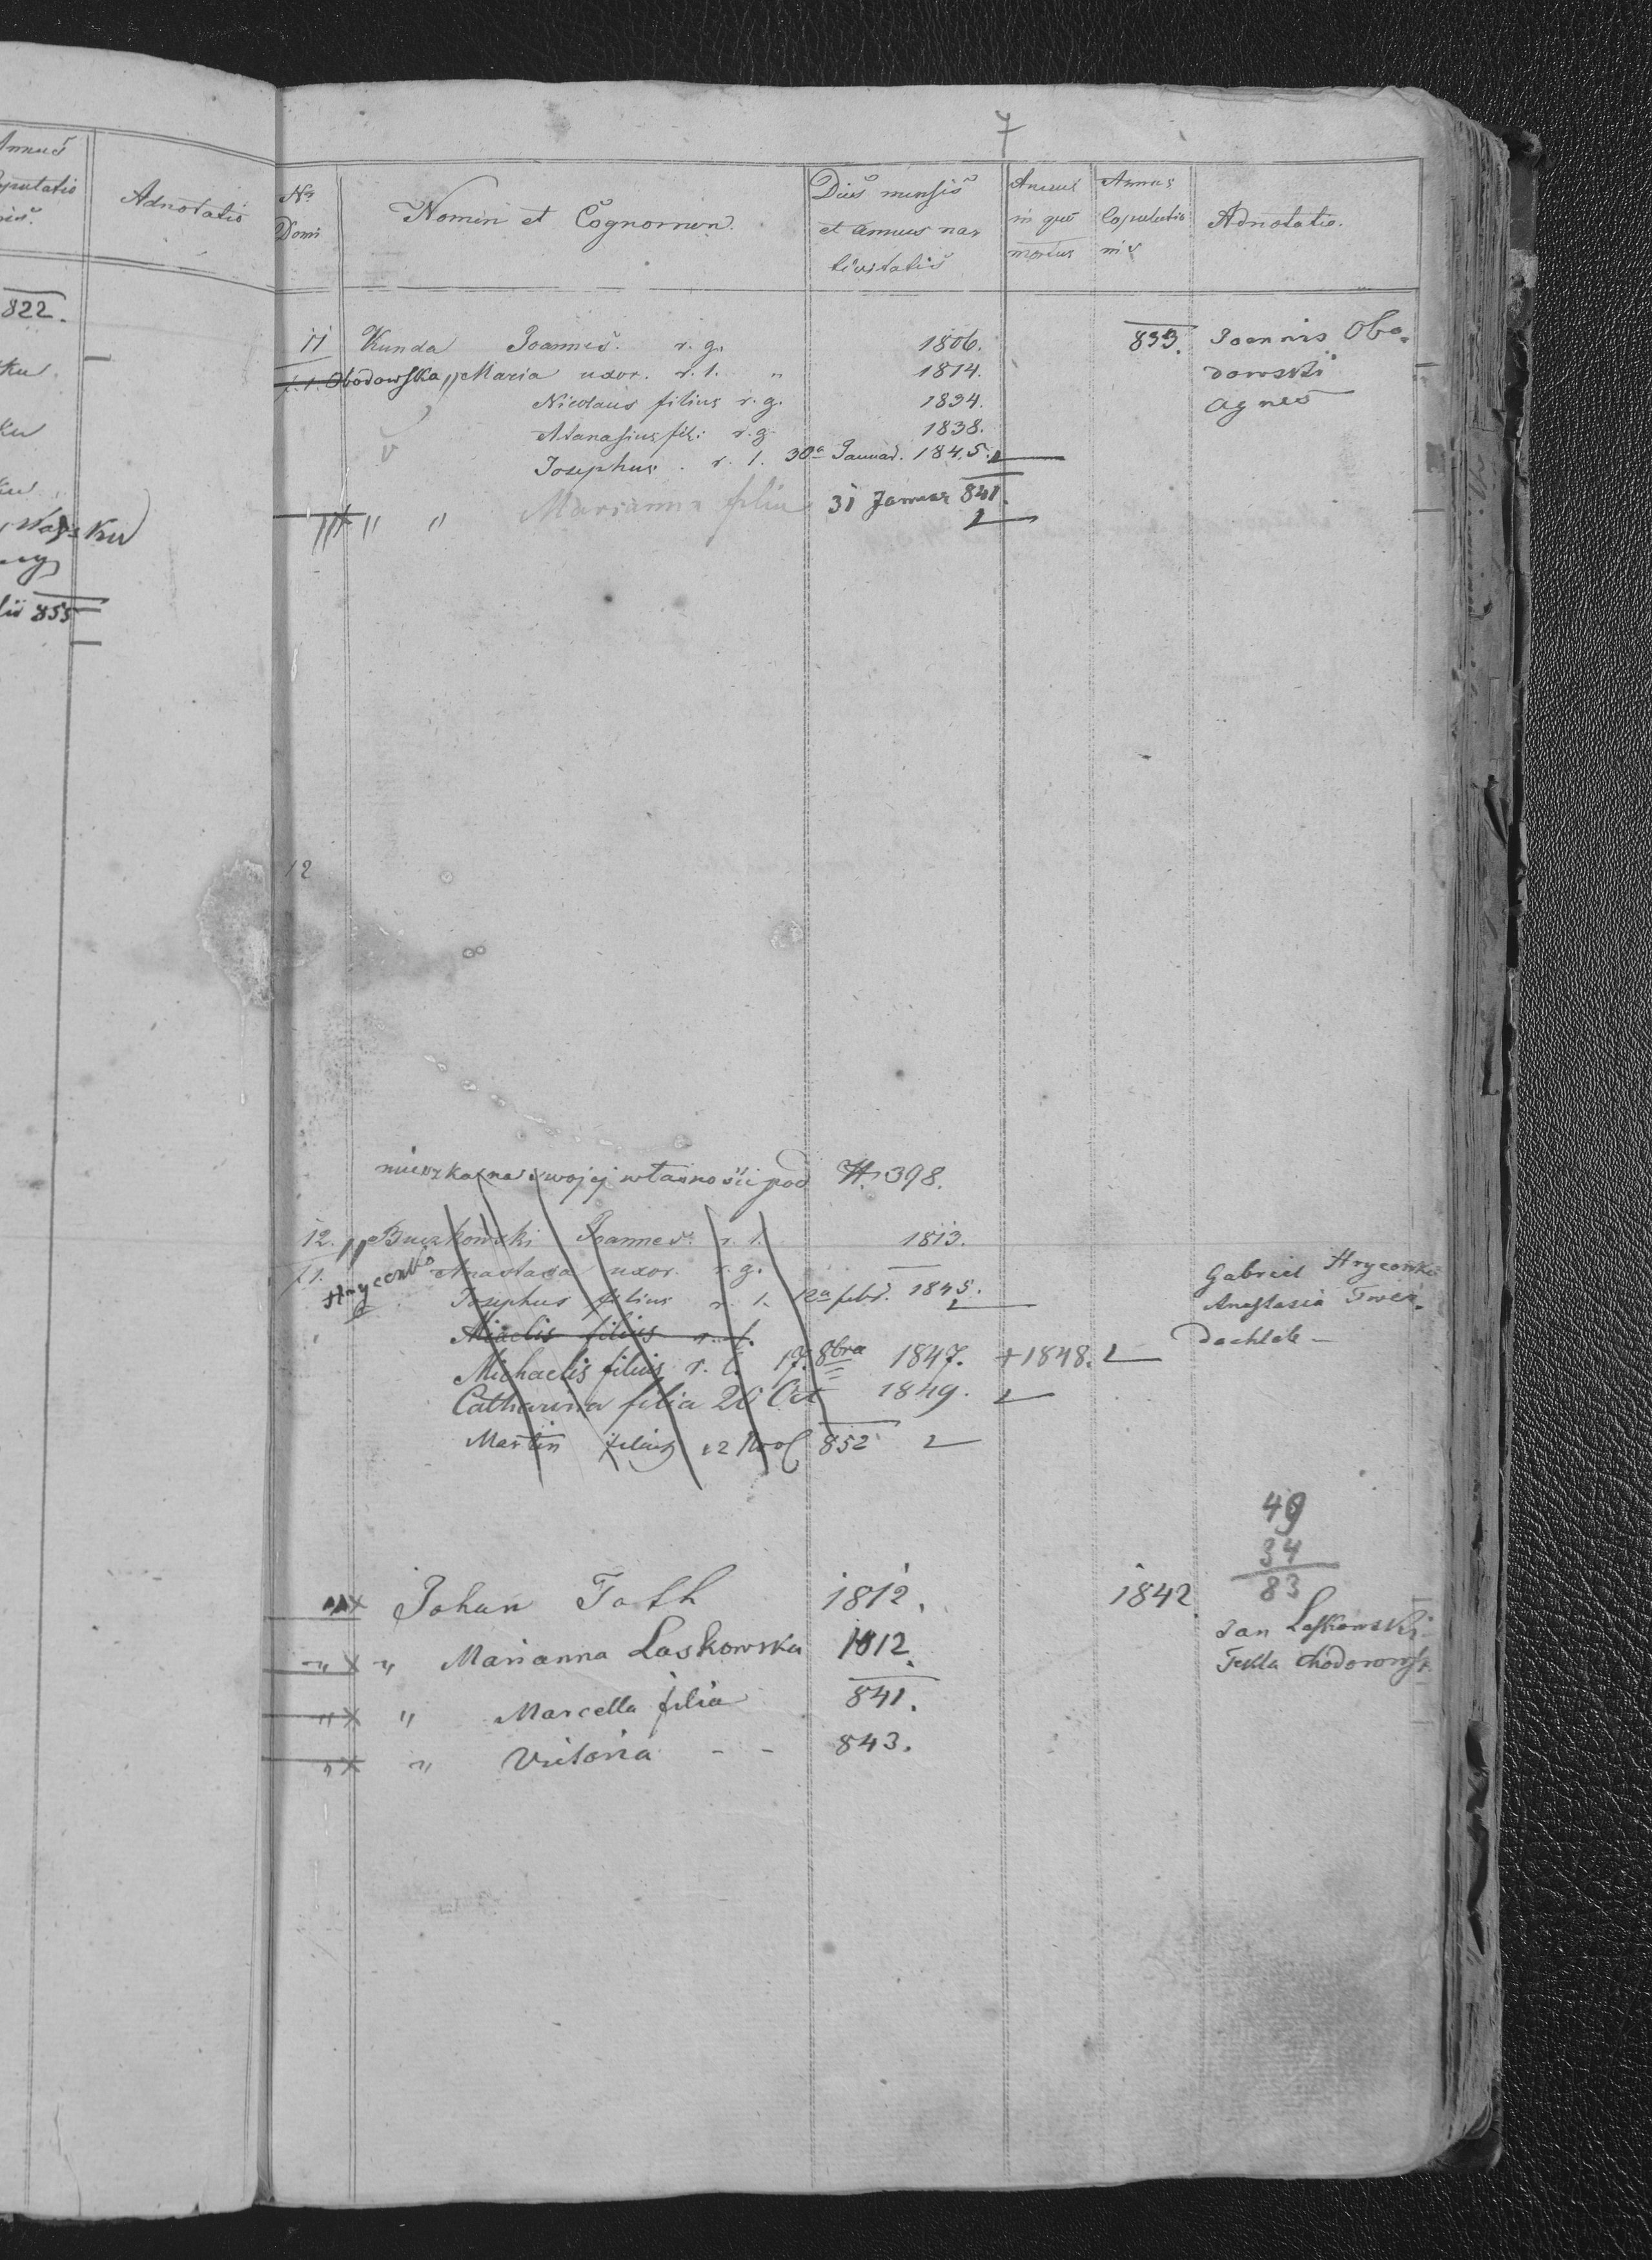 Annus
Adnotatio
822.
855
7
No Domi
Nomen et Cognomen.
Dies mensis et annus nativitatis
Annus in quo mortuus
Annus Copulationis
Adnotatio.
11 Kunda Joannes. r. g. 1806. 833. Joannis Obo-
Obodowska Maria uxor. r. l. " 1814. dowski
Nicolaus filius r. g. 1834. Agnes
Atanasius fil: r. g. 1838.
Josephus. r. l. 30a Januar. 1845.
" " Marianna filia 31 Januar 841.
12
mieszka na swojej własności pod N. 398.
12. Buczkowski Joannes. r. l. 1813.
Hryconko Anastasia uxor. r. g. Gabriel Hryconko
Josephus filius r. l. 12a febr. 1845. Anastasia
Miaelis filius r. l.
Michaelis filius r. l. 17. 8bra 1847. + 1848.
Catharina filia 20 Oct 1849.
Martin filius 12 852
49
34
83
x Johan Toth 1812. 1842.
" x " Marianna Laskowska 1812. Jan Laskowski
" x " Marcella filia 841. Tekla Chodorowsk
" x " Victoria - - 843.